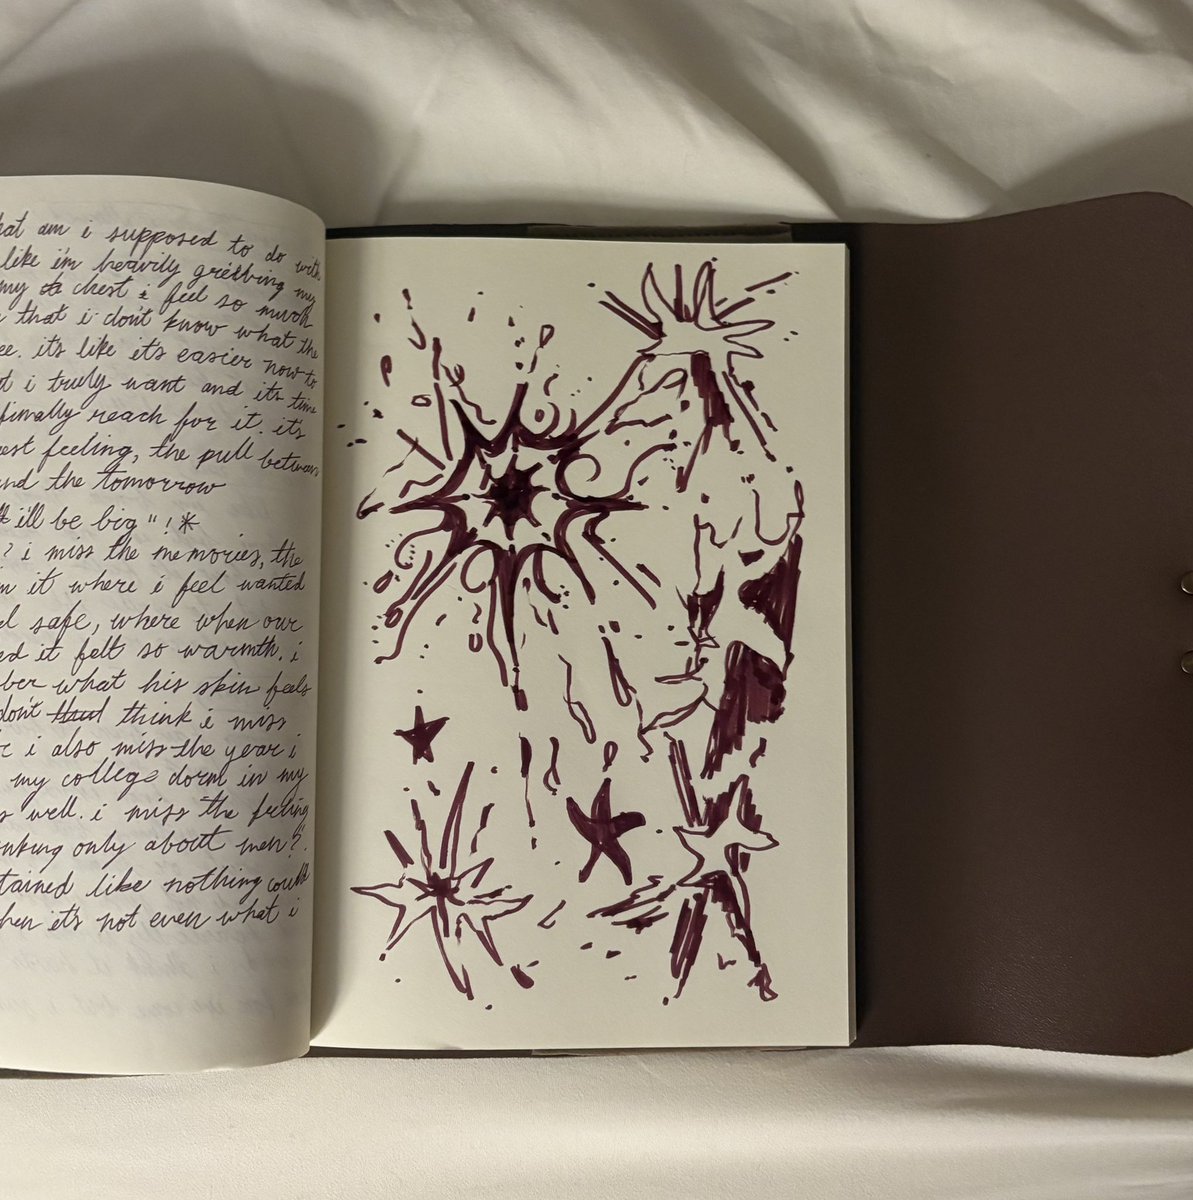 hat am i supposed to do with
like i'm heavily grieving my
my chest i feel so much
that i don't know what the
ee. it's like it's easier now to
i truly want and it's time
finally reach for it. it's
est feeling, the pull between
and the tomorrow
i'll be big"! *
? i miss the memories, the
in it where i feel wanted
el safe, where when our
ed it felt so warmth. i
ber what his skin feels
don't think i miss
i also miss the year i
my college dorm in my
s well. i miss "the feeling
nking only about men?".
tained like nothing could
hen it's not even what i